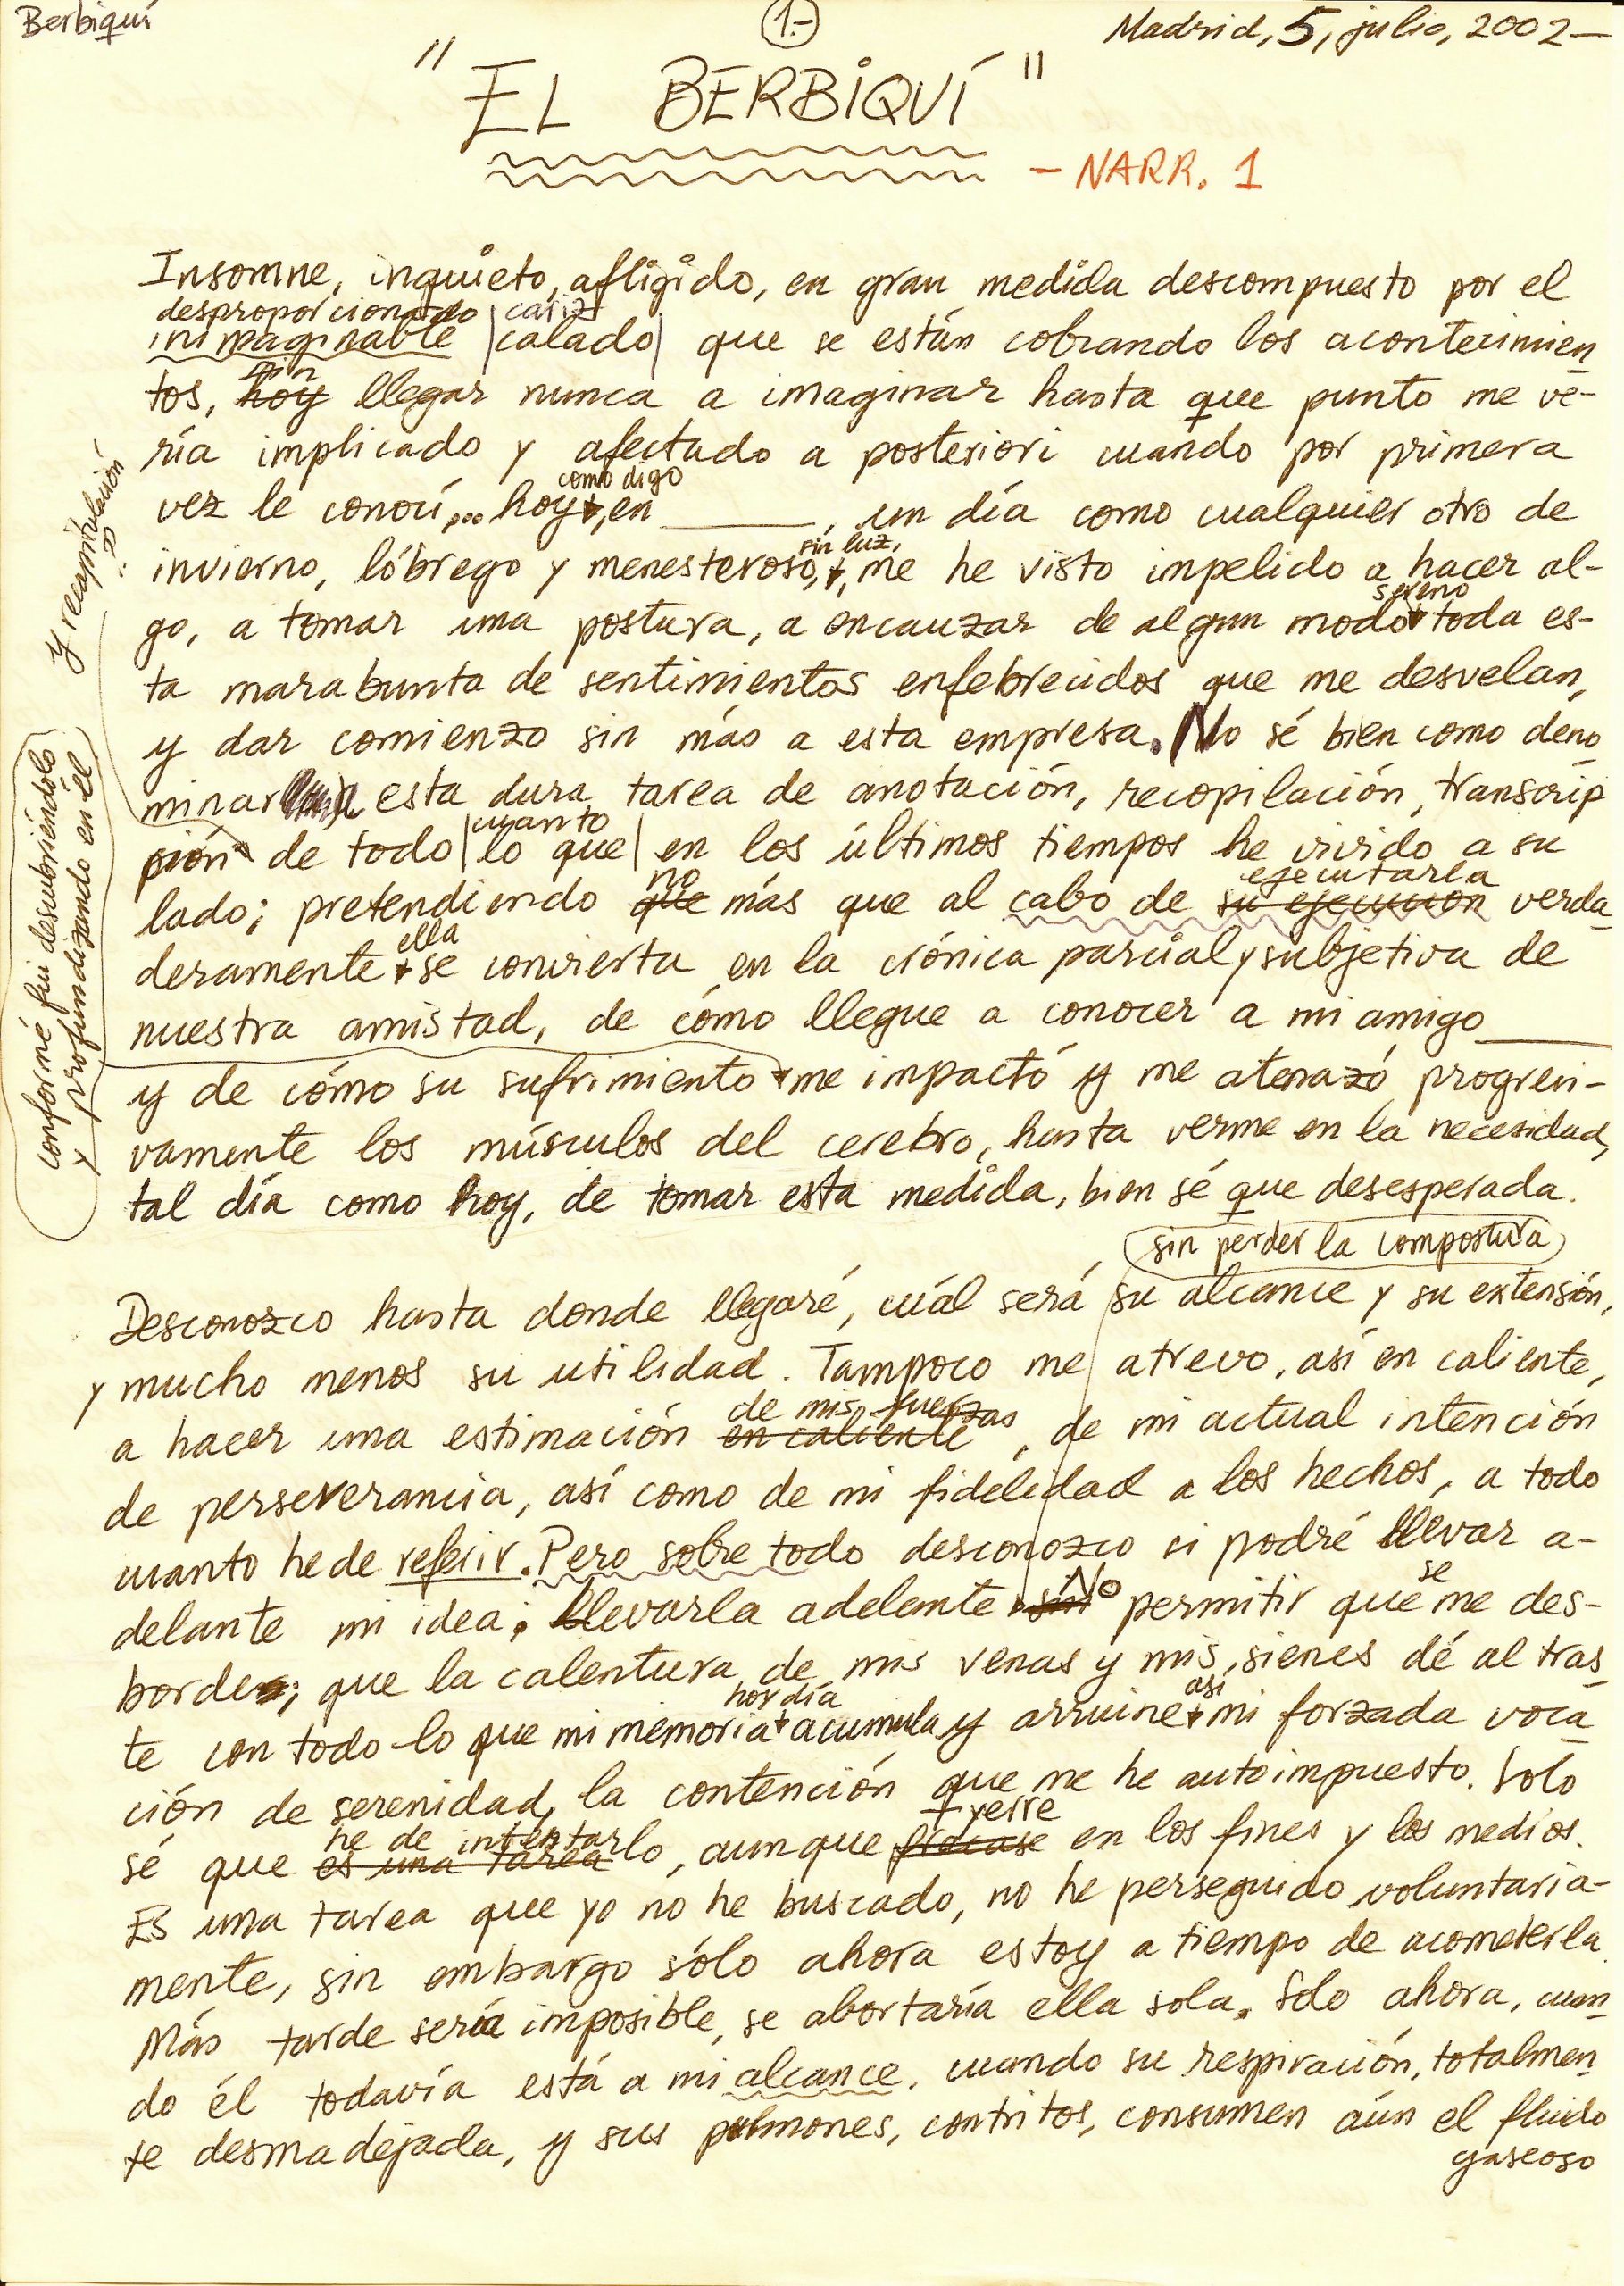 Berbiquí
1.-
Madrid, 5, julio, 2002-
"EL BERBIQUÍ"
- NARR. 1
Insomne, inquieto, afligido, en gran medida descompuesto por el
desproporcionado |cariz
inimaginable |calado| que se están cobrando los acontecimien
sin
tos, hoy llegar nunca a imaginar hasta que punto me ve-
ría implicado y afectado a posteriori cuando por primera
como digo
vez le conocí... hoy, en ______, un día como cualquier otro de
sin luz,
invierno, lóbrego y menesteroso, me he visto impelido a hacer al-
sereno
go, a tomar una postura, a encauzar de algun modo toda es-
ta marabunta de sentimientos enfebrecidos que me desvelan,
y dar comienzo sin más a esta empresa. No sé bien como deno
minar esta dura tarea de anotación, recopilación, transcrip
y recapitulación
cuanto
ción de todo |lo que| en los últimos tiempos he vivido a su
no ejecutarla
lado; pretendiendo que más que al cabo de su ejecución verda
ella
deramente se convierta en la crónica parcial y subjetiva de
nuestra amistad, de cómo llegue a conocer a mi amigo ______
conforme fui descubriéndolo
y profundizando en él
y de cómo su sufrimiento me impactó y me atenazó progresi-
vamente los músculos del cerebro, hasta verme en la necesidad,
tal día como hoy, de tomar esta medida, bien sé que desesperada.
sin perder la compostura
Desconozco hasta donde llegaré, cuál será su alcance y su extensión,
y mucho menos su utilidad. Tampoco me atrevo, así en caliente,
de mis fuerzas
a hacer una estimación en caliente, de mi actual intención
de perseverancia, así como de mi fidelidad a los hechos, a todo
cuanto he de referir. Pero sobre todo desconozco si podré llevar a-
No se
delante mi idea; llevarla adelente sin permitir que me des-
borde; que la calentura de mis venas y mis sienes dé al tras
hoy día así
te con todo lo que mi memoria acumula y arruine mi forzada voca
ción de serenidad, la contención que me he autoimpuesto. Solo
he de intentarlo yerre
sé que es una tarea, aunque fracase en los fines y los medios.
Es una tarea que yo no he buscado, no he perseguido voluntaria-
mente, sin embargo sólo ahora estoy a tiempo de acometerla.
Más tarde sería imposible, se abortaría ella sola. Solo ahora, cuan
do él todavía está a mi alcance, cuando su respiración, totalmen
te desmadejada, y sus pulmones, contritos, consumen aún el fluido
gaseoso